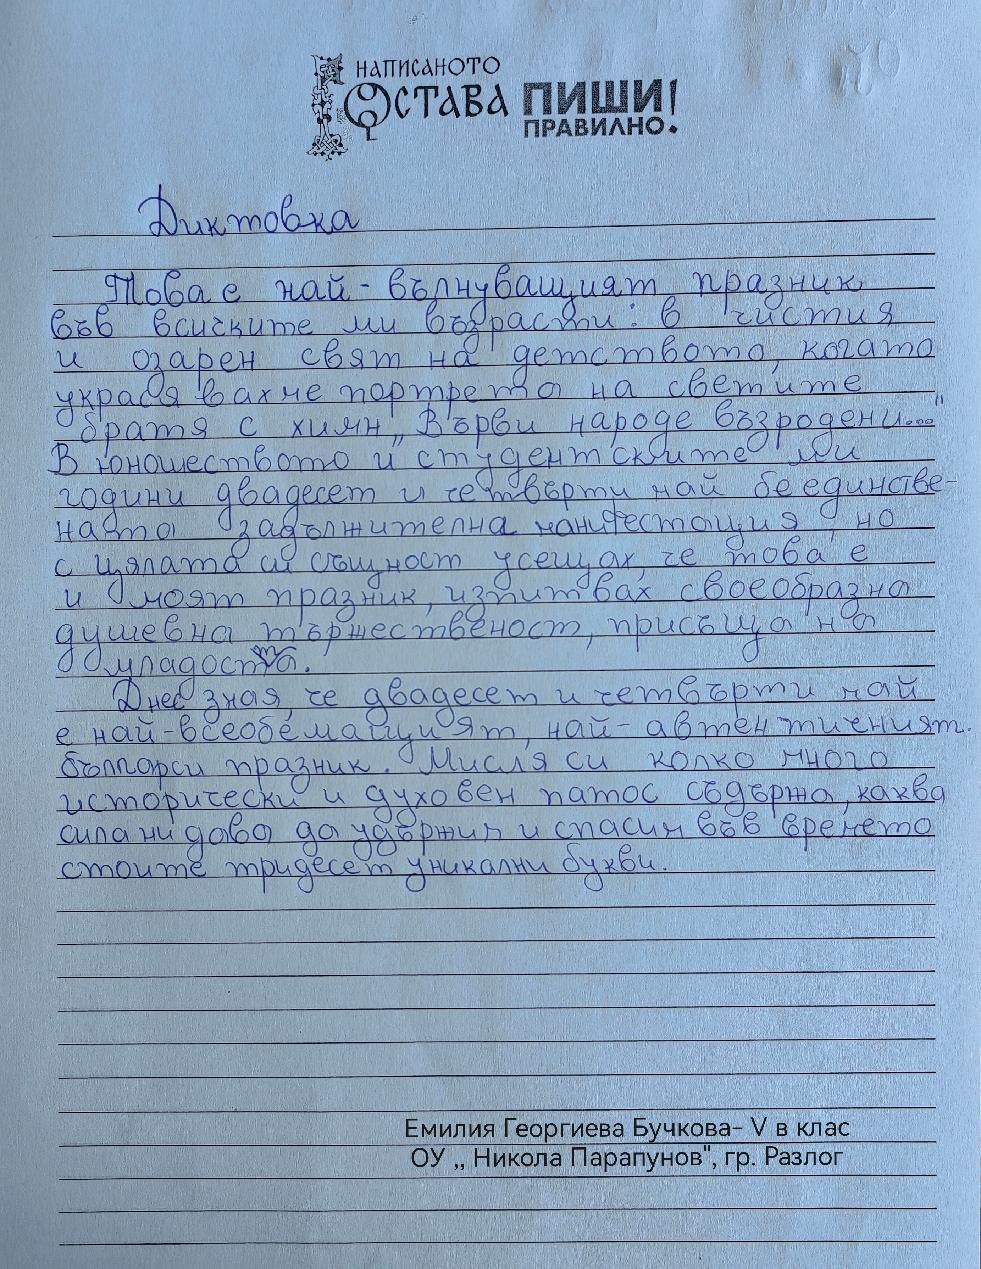 НАПИСАНОТО
ОСТАВА ПИШИ
ПРАВИЛНО!
Диктовка
Това е най-вълнуващият празник
във всиските ми възрасти: в чистия
и озарен свят на детството, когато
украсявахме портрета на светите
братя с химн „Върви народе възродени..."
В юношеството и студентските ми
години двадесет и четвърти май бе единстве-
ната задължителна манифестация, но
с цялата си същност усещах, че това е
и моят празник, изпитвах своеобразна
душевна тържественост, присъща на
младостта.
Днес зная, че двадесет и четвърти май
е най-всеобемащият, най-автентичният
български празник. Мисля си колко много
исторически и духовен патос съдържа, каква
сила ни дава да удържим и спасим във времето
стоите тридесет уникални букви.
Емилия Георгиева Бучкова– V в клас
ОУ ,, Никола Парапунов", гр. Разлог